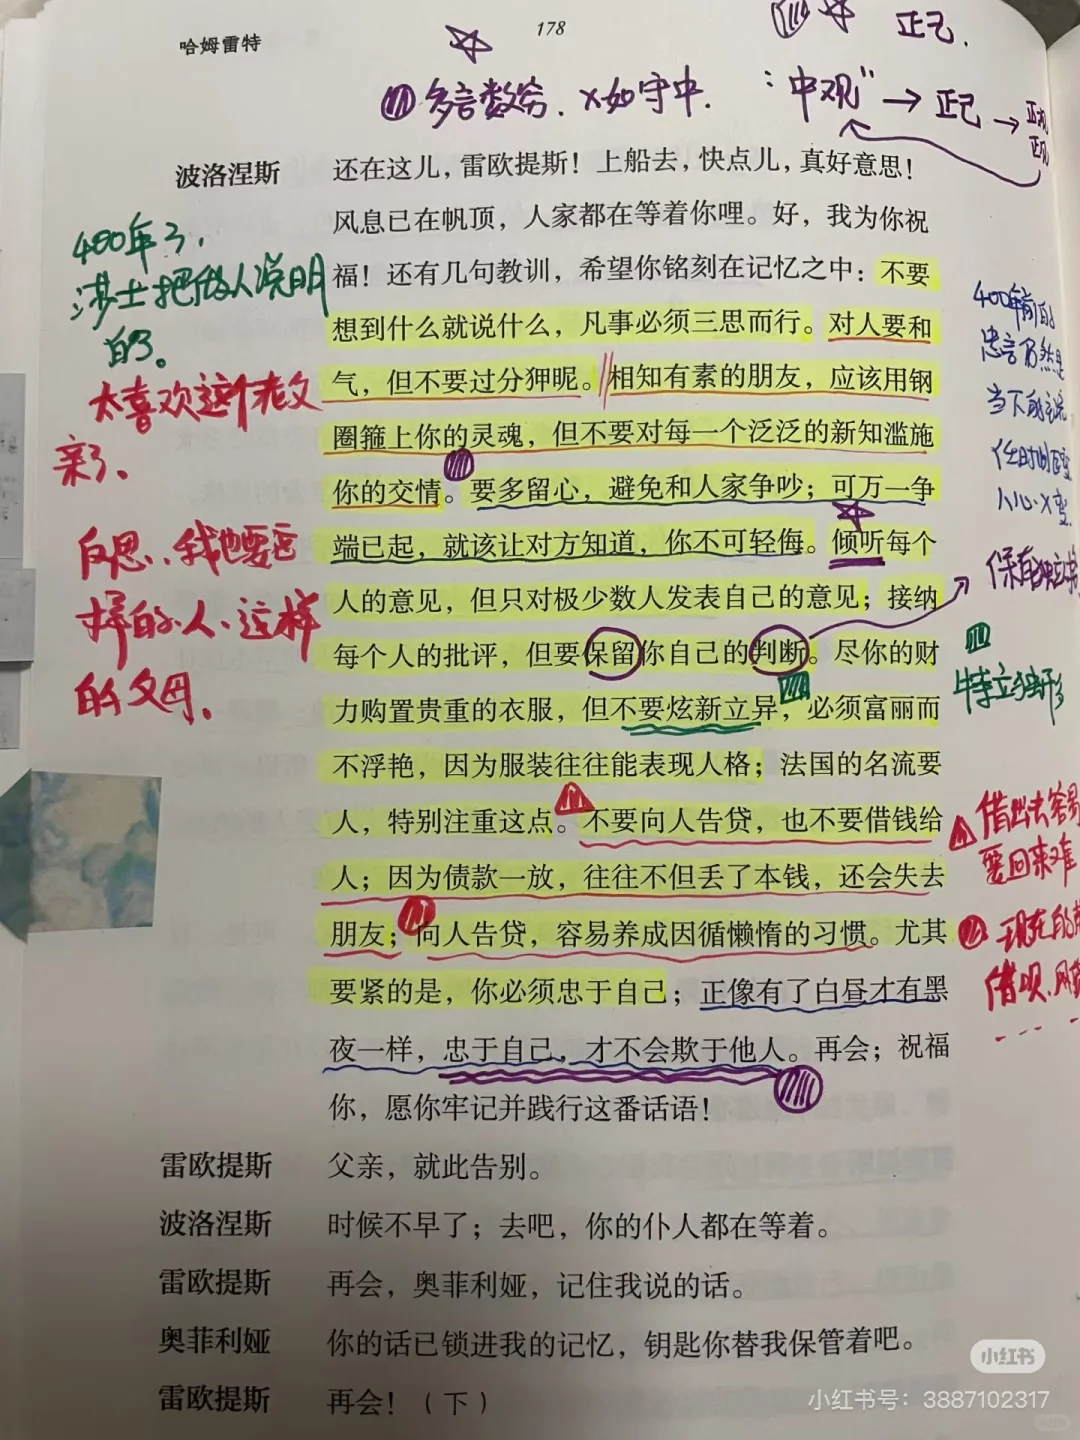 哈姆雷特
178
正己.
多言数穷.不如守中.
:"中观"→正己→
波洛涅斯 还在这儿，雷欧提斯！上船去，快点儿，真好意思！
风息已在帆顶，人家都在等着你哩。好，我为你祝
福！还有几句教训，希望你铭刻在记忆之中：不要
想到什么就说什么，凡事必须三思而行。对人要和
气，但不要过分狎昵。相知有素的朋友，应该用钢
圈箍上你的灵魂，但不要对每一个泛泛的新知滥施
你的交情。要多留心，避免和人家争吵；可万一争
端已起，就该让对方知道，你不可轻侮。倾听每个
人的意见，但只对极少数人发表自己的意见；接纳
每个人的批评，但要保留你自己的判断。尽你的财
力购置贵重的衣服，但不要炫新立异，必须富丽而
不浮艳，因为服装往往能表现人格；法国的名流要
人，特别注重这点。不要向人告贷，也不要借钱给
人；因为债款一放，往往不但丢了本钱，还会失去
朋友；向人告贷，容易养成因循懒惰的习惯。尤其
要紧的是，你必须忠于自己；正像有了白昼才有黑
夜一样，忠于自己，才不会欺于他人。再会；祝福
你，愿你牢记并践行这番话语！
雷欧提斯 父亲，就此告别。
波洛涅斯 时候不早了；去吧，你的仆人都在等着。
雷欧提斯 再会，奥菲利娅，记住我说的话。
奥菲利娅 你的话已锁进我的记忆，钥匙你替我保管着吧。
雷欧提斯 再会！（下）
400年了，
莎士把做人说明
白了。
太喜欢这个老父
亲了。
反思，我也要
样的人、这样
的父母。
400年前的
忠言仍然是
当下的
任时
人心不变
保有独立
特立独行
借出去容易
要回来难
现在的
借呗、网
小红书
小红书号：3887102317